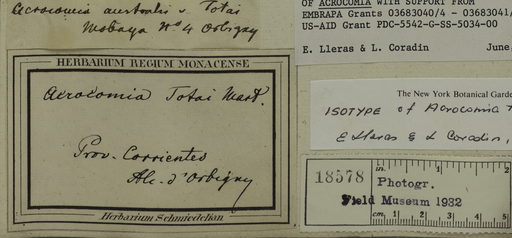 Acrocomia australis v. Totai
Mobaya No 4 Orbigny
HERBARIUM REGIUM MONACENSE
Acrocomia Totai Mart.
Prov. Corrientes
Alc. d'Orbigny
Herbarium Schmiedelian
OF ACROCOMIA WITH SUPPORT FROM
EMBRAPA Grants 03683040/4 - 03683041/
US-AID Grant PDC-5542-G-SS-5034-00
E. Lleras & L. Coradin June
The New York Botanical Garde
ISOTYPE of Acrocomia T
E Lleras & L Coradin,
18578
in. 1 2
Photogr.
Field Museum 1932
cm. 1 2 3 4 5